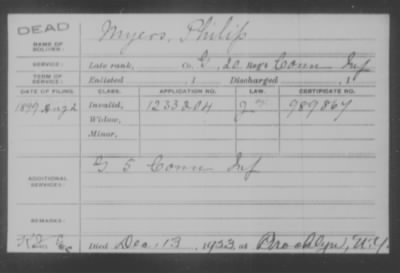 DEAD
NAME OF SOLDIER: Myers, Philip
SERVICE: Late rank, Co. G, 20 Reg't Conn Inf
TERM OF SERVICE: Enlisted , 1 Discharged , 1
DATE OF FILING. CLASS. APPLICATION NO. LAW. CERTIFICATE NO.
1899 Aug 2 Invalid, 1233204 989867
Widow,
Minor,
ADDITIONAL SERVICES: G 5 Conn Inf
REMARKS:
Died Dec. 13, 1923, at Brooklyn, N.Y.